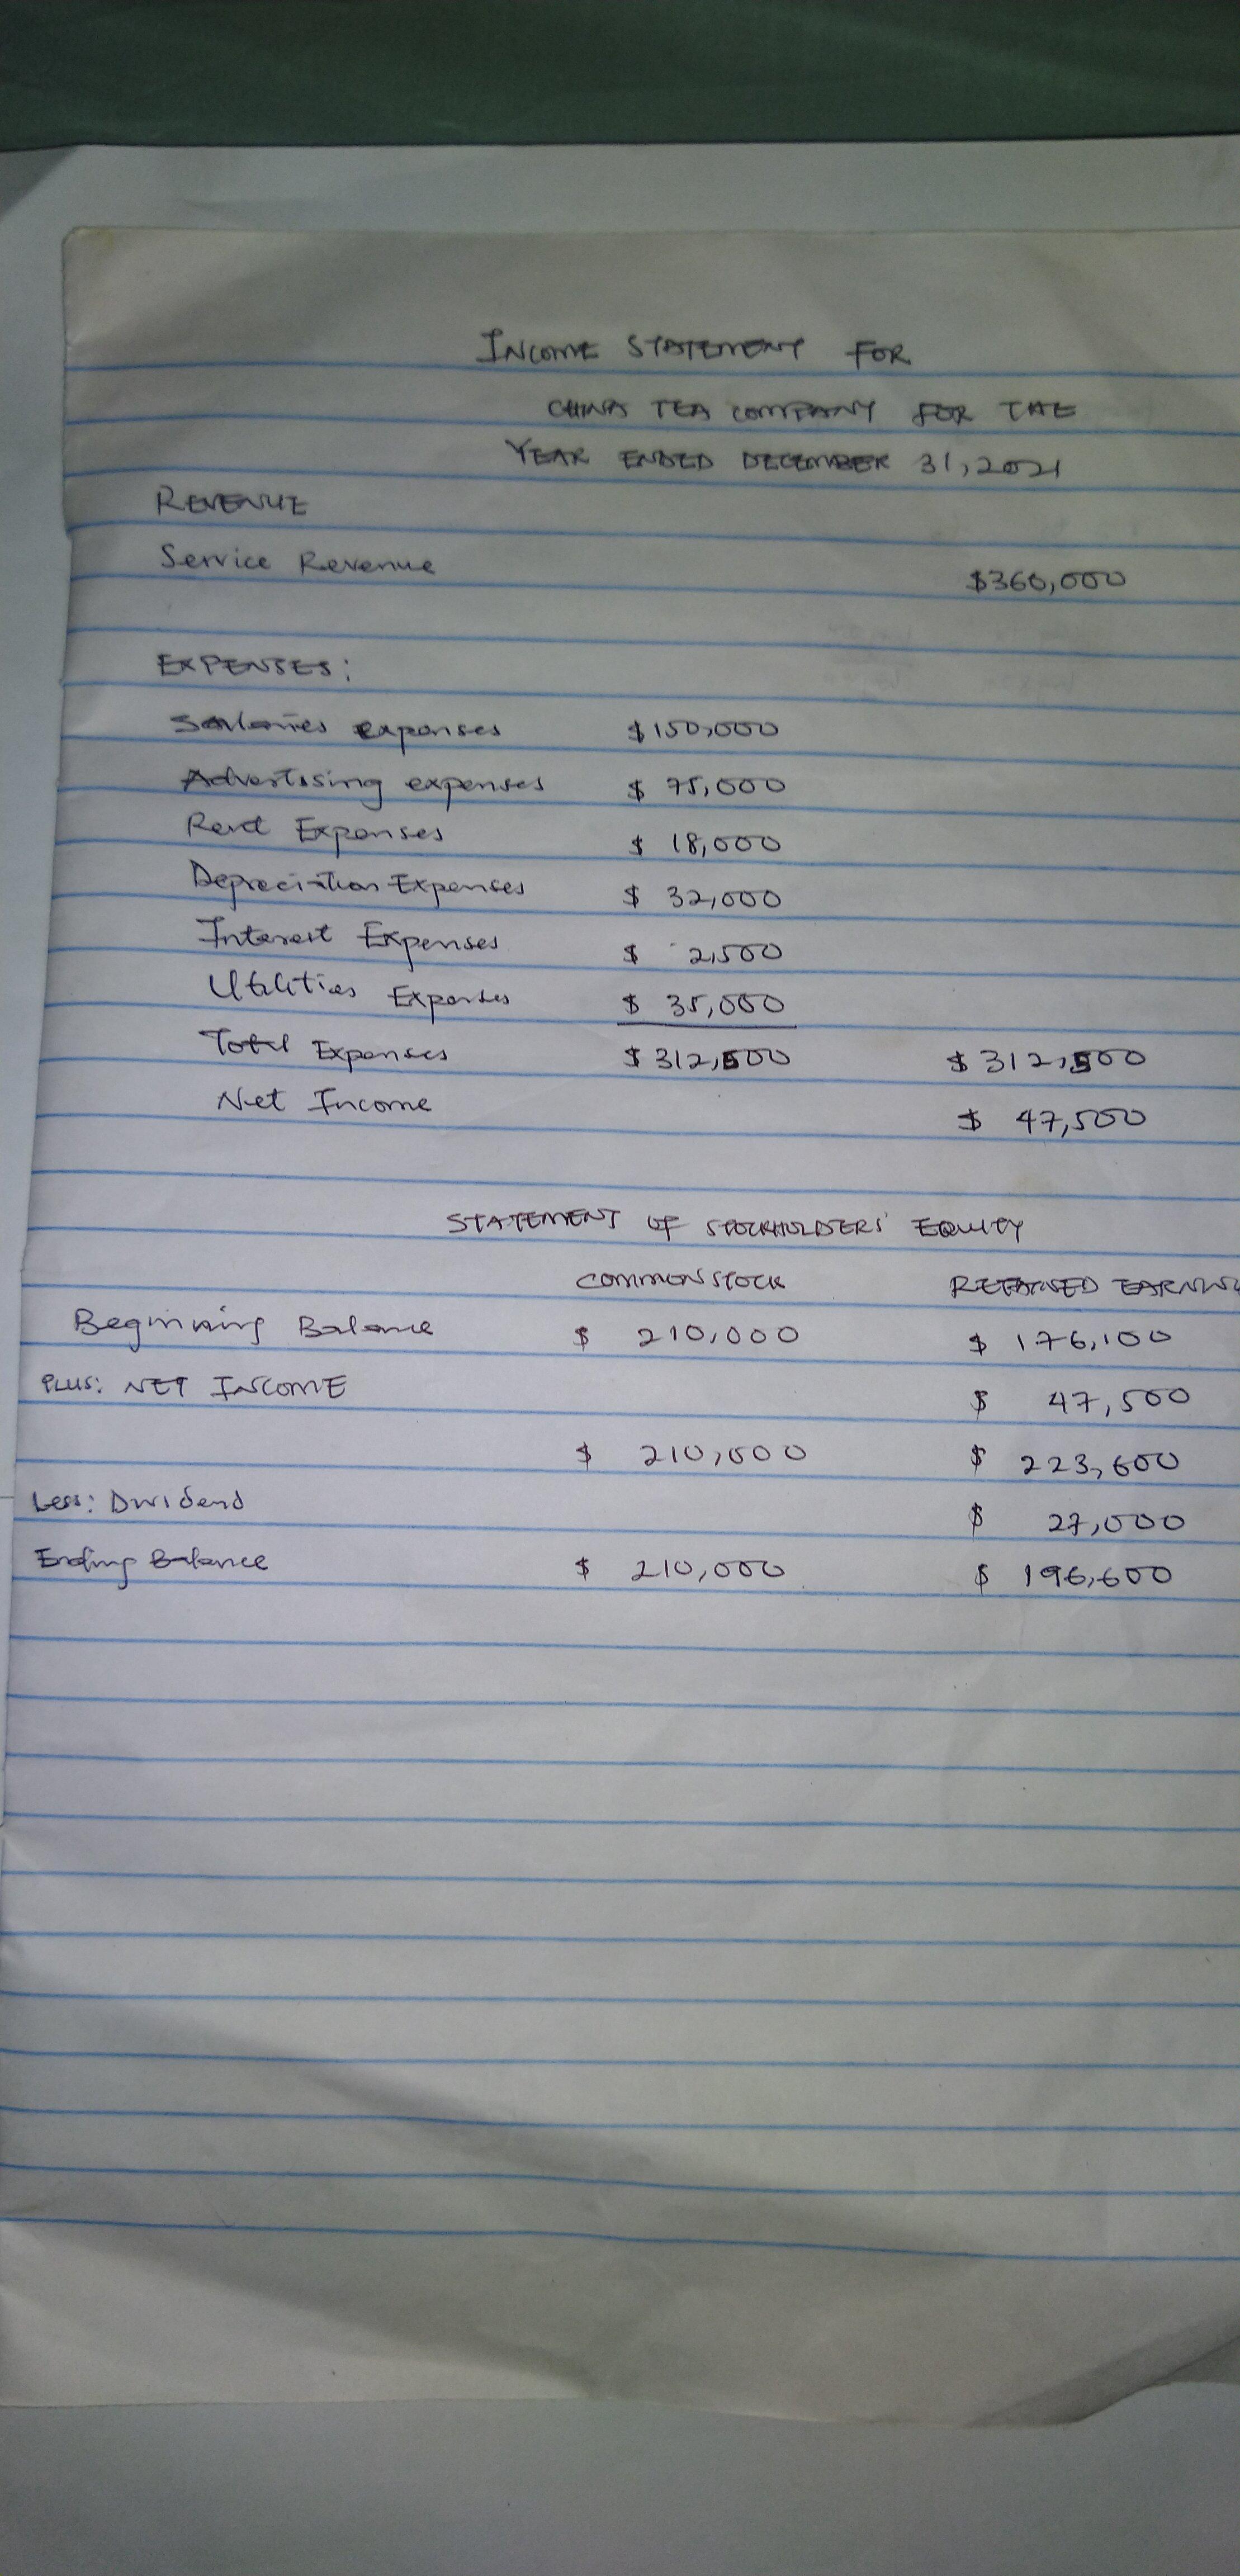 INCOME STATEMENT FOR
CHINA TEA COMPANY FOR THE
YEAR ENDED DECEMBER 31, 2021
REVENUE
Service Revenue $360,000
EXPENSES:
Salaries expenses $150,000
Advertising expenses $ 75,000
Rent Expenses $ 18,000
Depreciation Expenses $ 32,000
Interest Expenses $ 2,500
Utilities Expenses $ 35,000
Total Expenses $312,500 $312,500
Net Income $ 47,500
STATEMENT OF STOCKHOLDERS' EQUITY
COMMON STOCK RETAINED EARNIN
Beginning Balance $ 210,000 $ 176,100
PLUS: NET INCOME $ 47,500
$ 210,000 $ 223,600
Less: Dividend $ 27,000
Ending Balance $ 210,000 $ 196,600